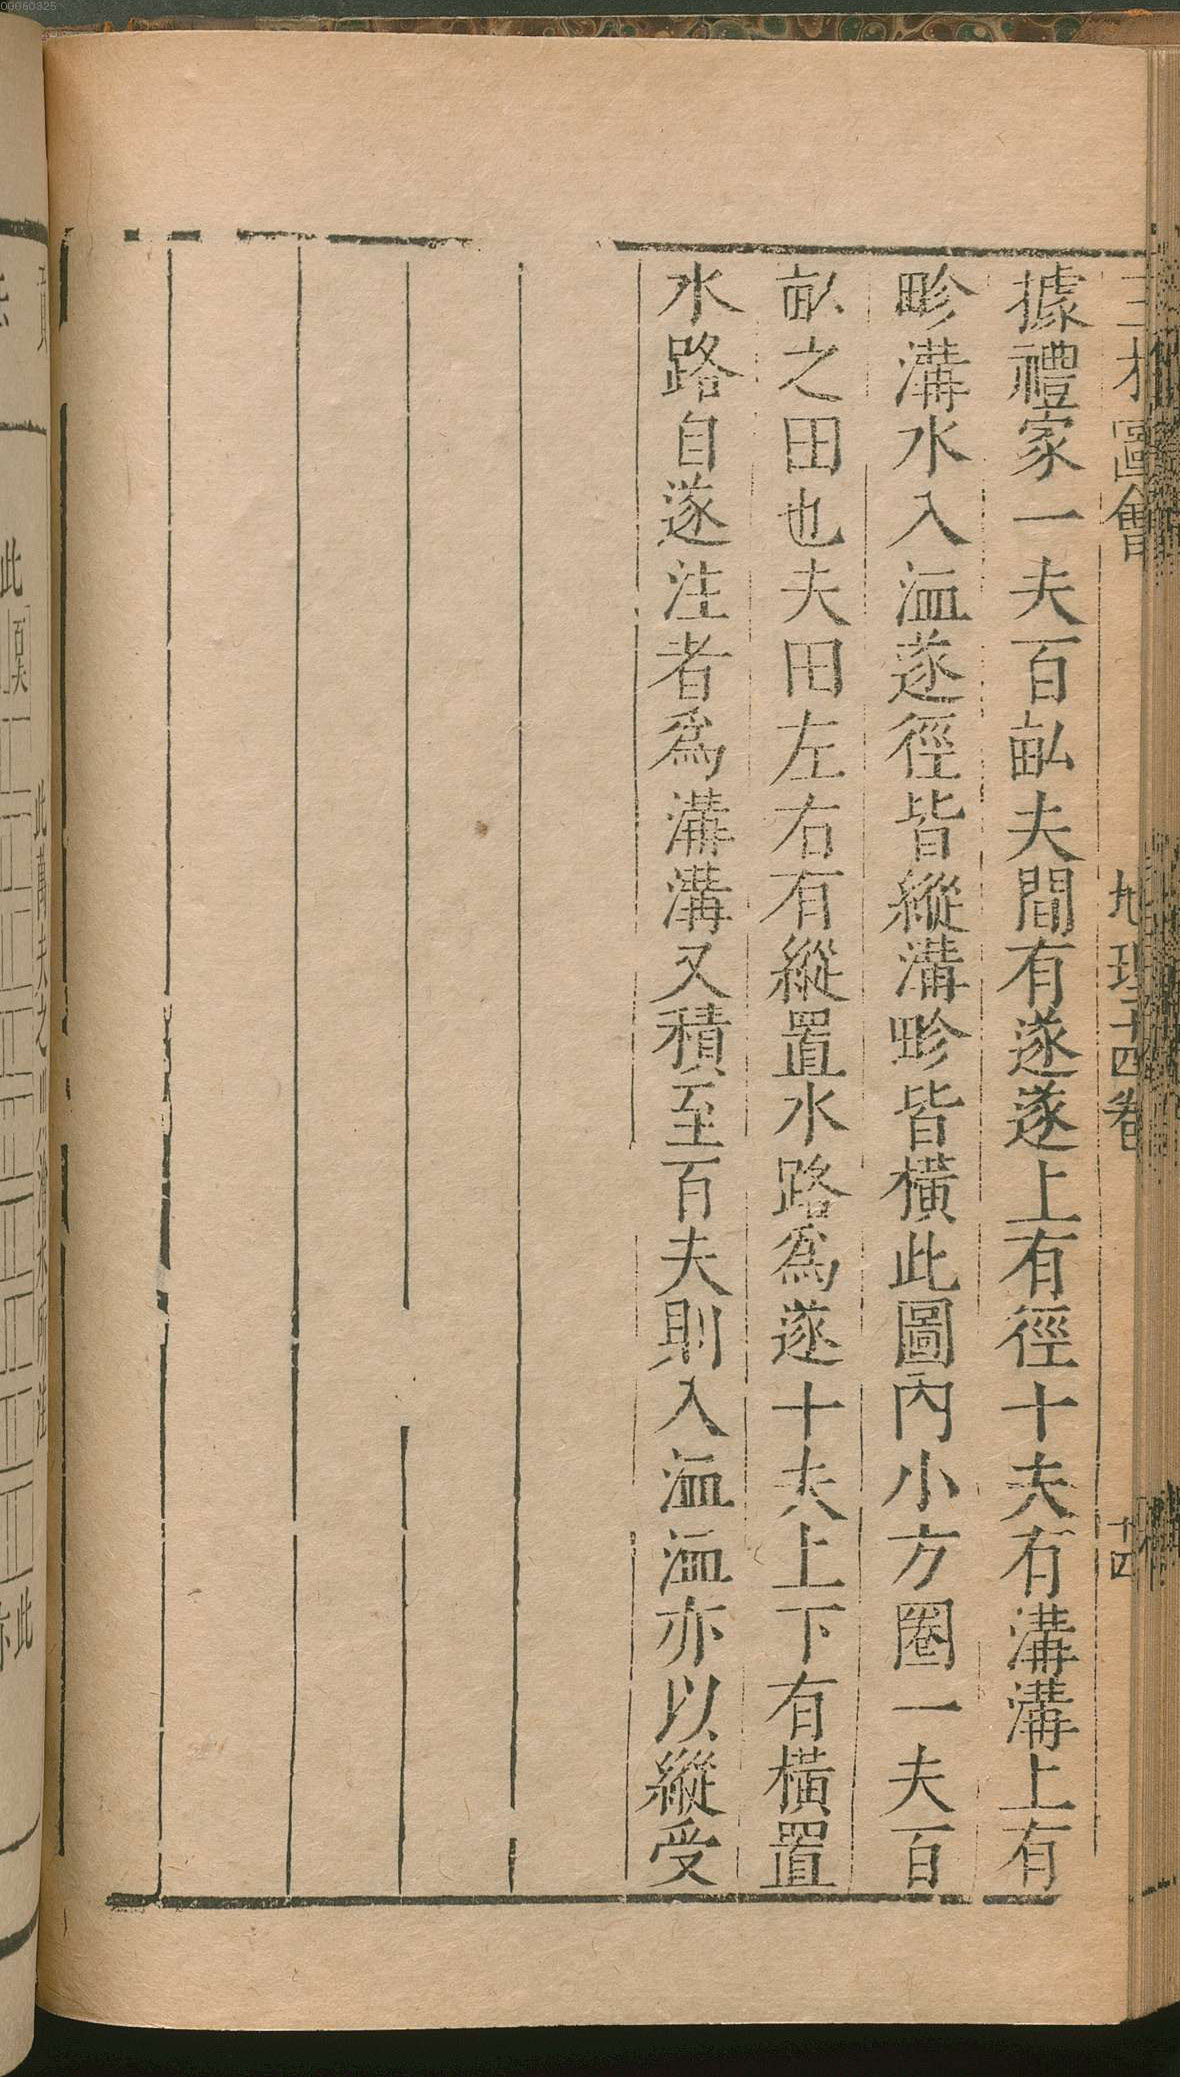 三才圖會 地理十四卷 十四
據禮家一夫百畝夫間有遂遂上有徑十夫有溝溝上有
畛溝水入洫遂徑皆縱溝畛皆橫此圖內小方圈一夫百
畝之田也夫田左右有縱置水路為遂十夫上下有橫置
水路自遂注者為溝溝又積至百夫則入洫洫亦以縱受
此萬夫之
此
00060325